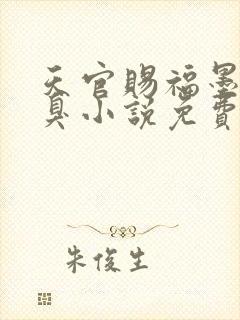 天官賜福墨
臭小說免費
朱俊生